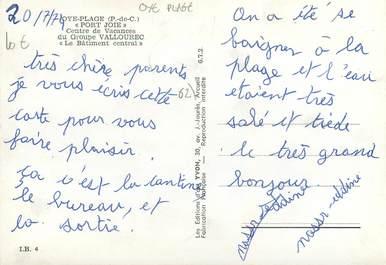 20/7/74
OYE-PLAGE (P.-de-C.)
« PORT JOIE »
Centre de Vacances
du Groupe VALLOUREC
« Le Bâtiment central »
OYE PLAGE
très chère parents
je vous écris cette
carte pour vous
faire plaisir.
Ça c'est la cantine
le bureau, et
la sortie.
I.B. 4
62
6.7.2
Les Editions de YVON, 30, av. J.-Jaurès, Arcueil
Fabrication Française — Reproduction interdite
On a été se
baigner à la
plage et l'eau
etaient très
salé et tiède
le très grand
bonjour.
nassr-eddine
nassr-eddine